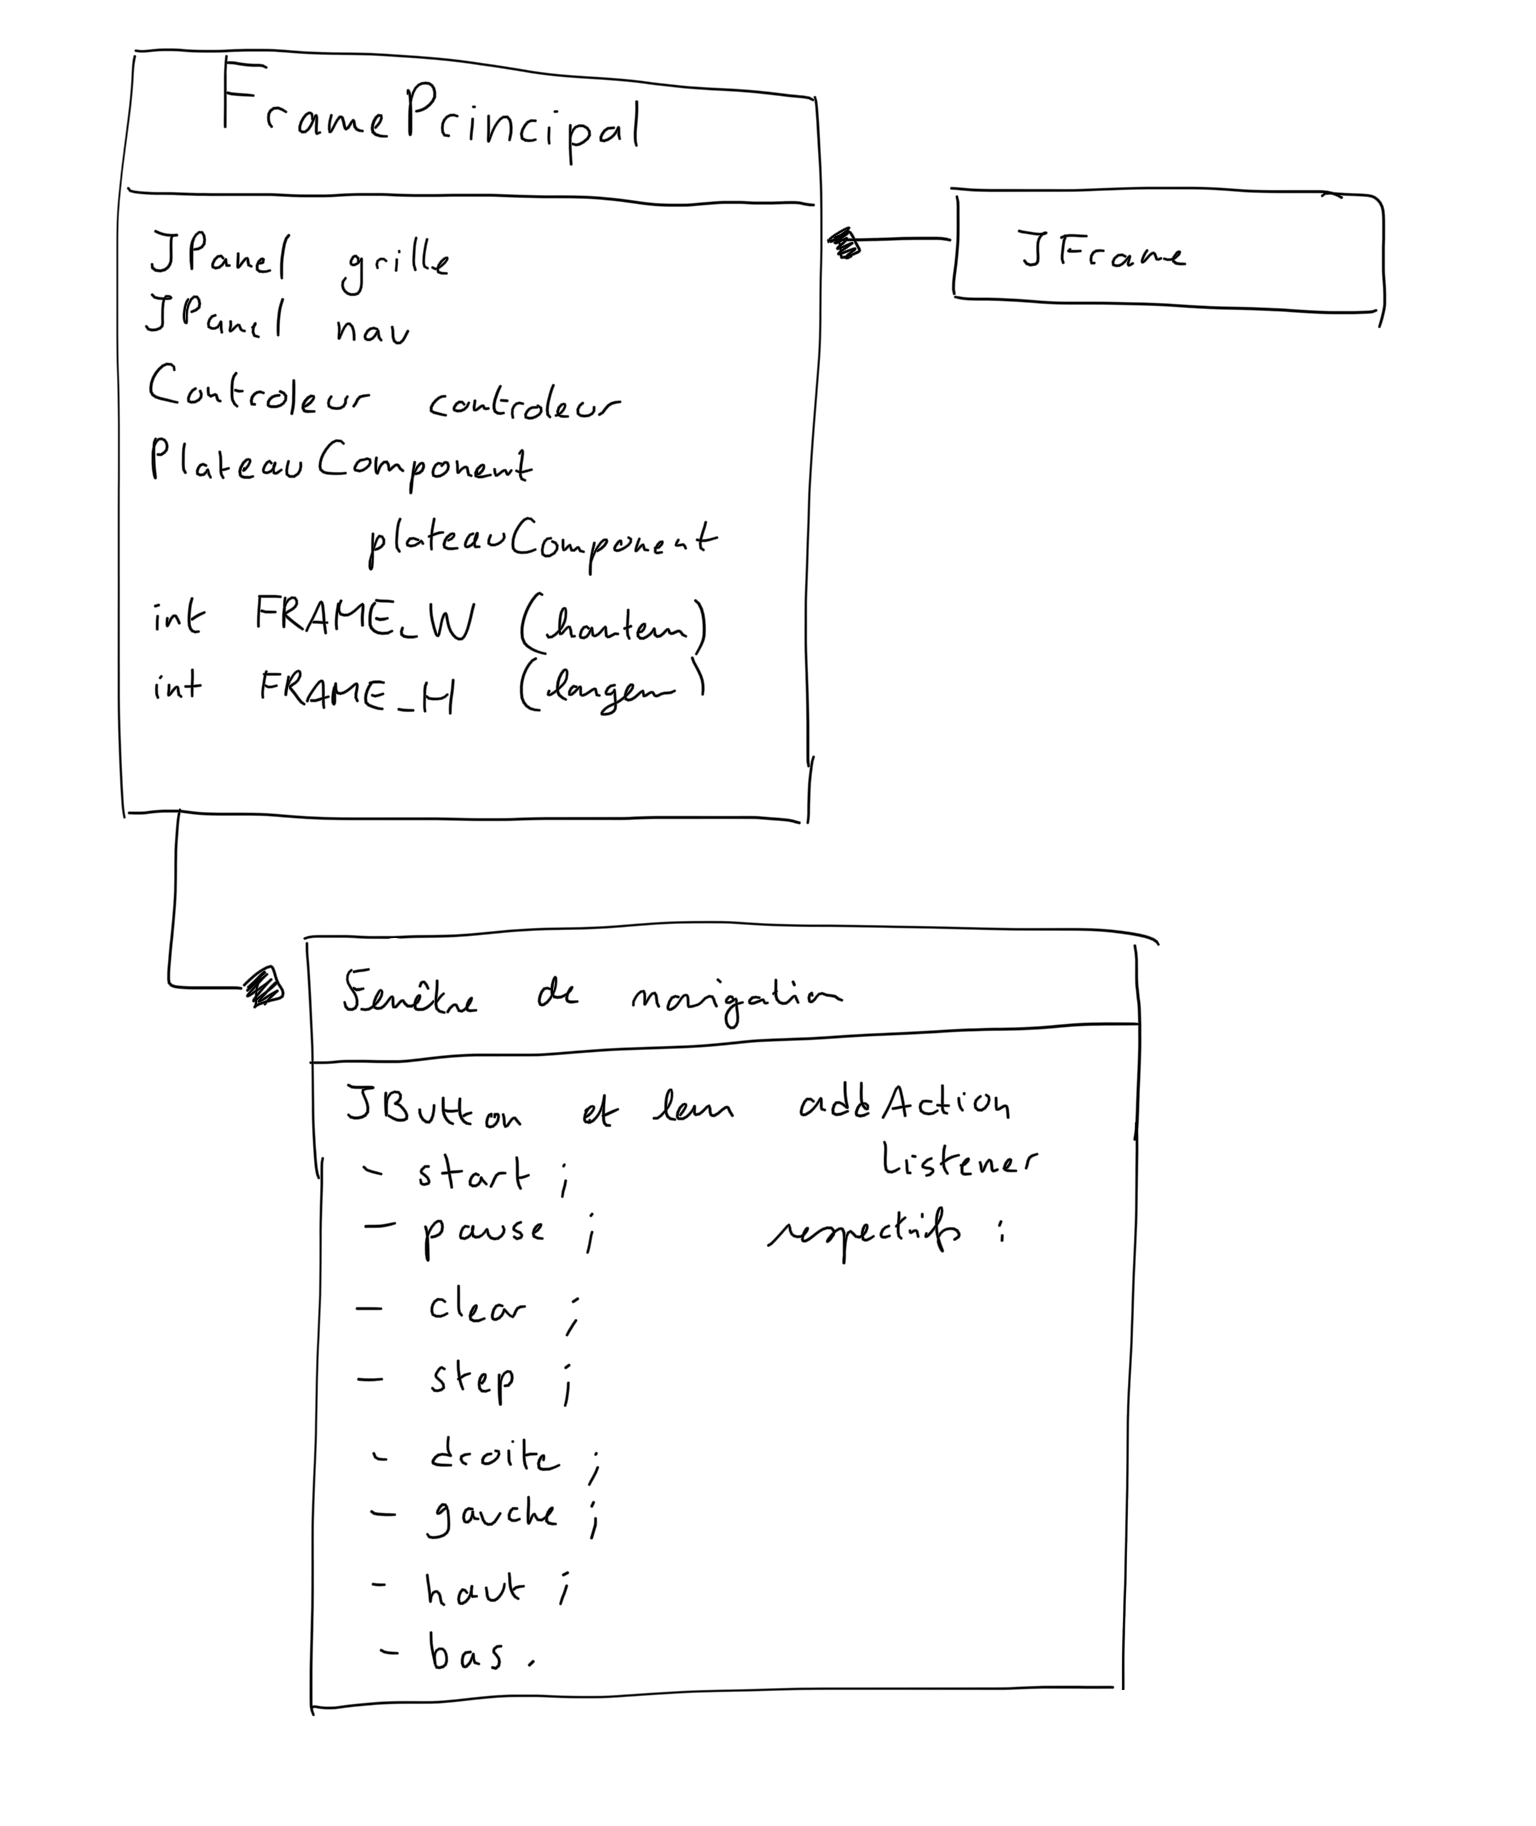 FramePrincipal
JPanel grille
JPanel nav
Controleur controleur
PlateauComponent
plateauComponent
int FRAME_W (hauteur)
int FRAME_H (largeur)
JFrame
Fenêtre de navigation
JButton et leur addAction
Listener
- start ;
- pause ; respectifs :
- clear ;
- step ;
- droite ;
- gauche ;
- haut ;
- bas .